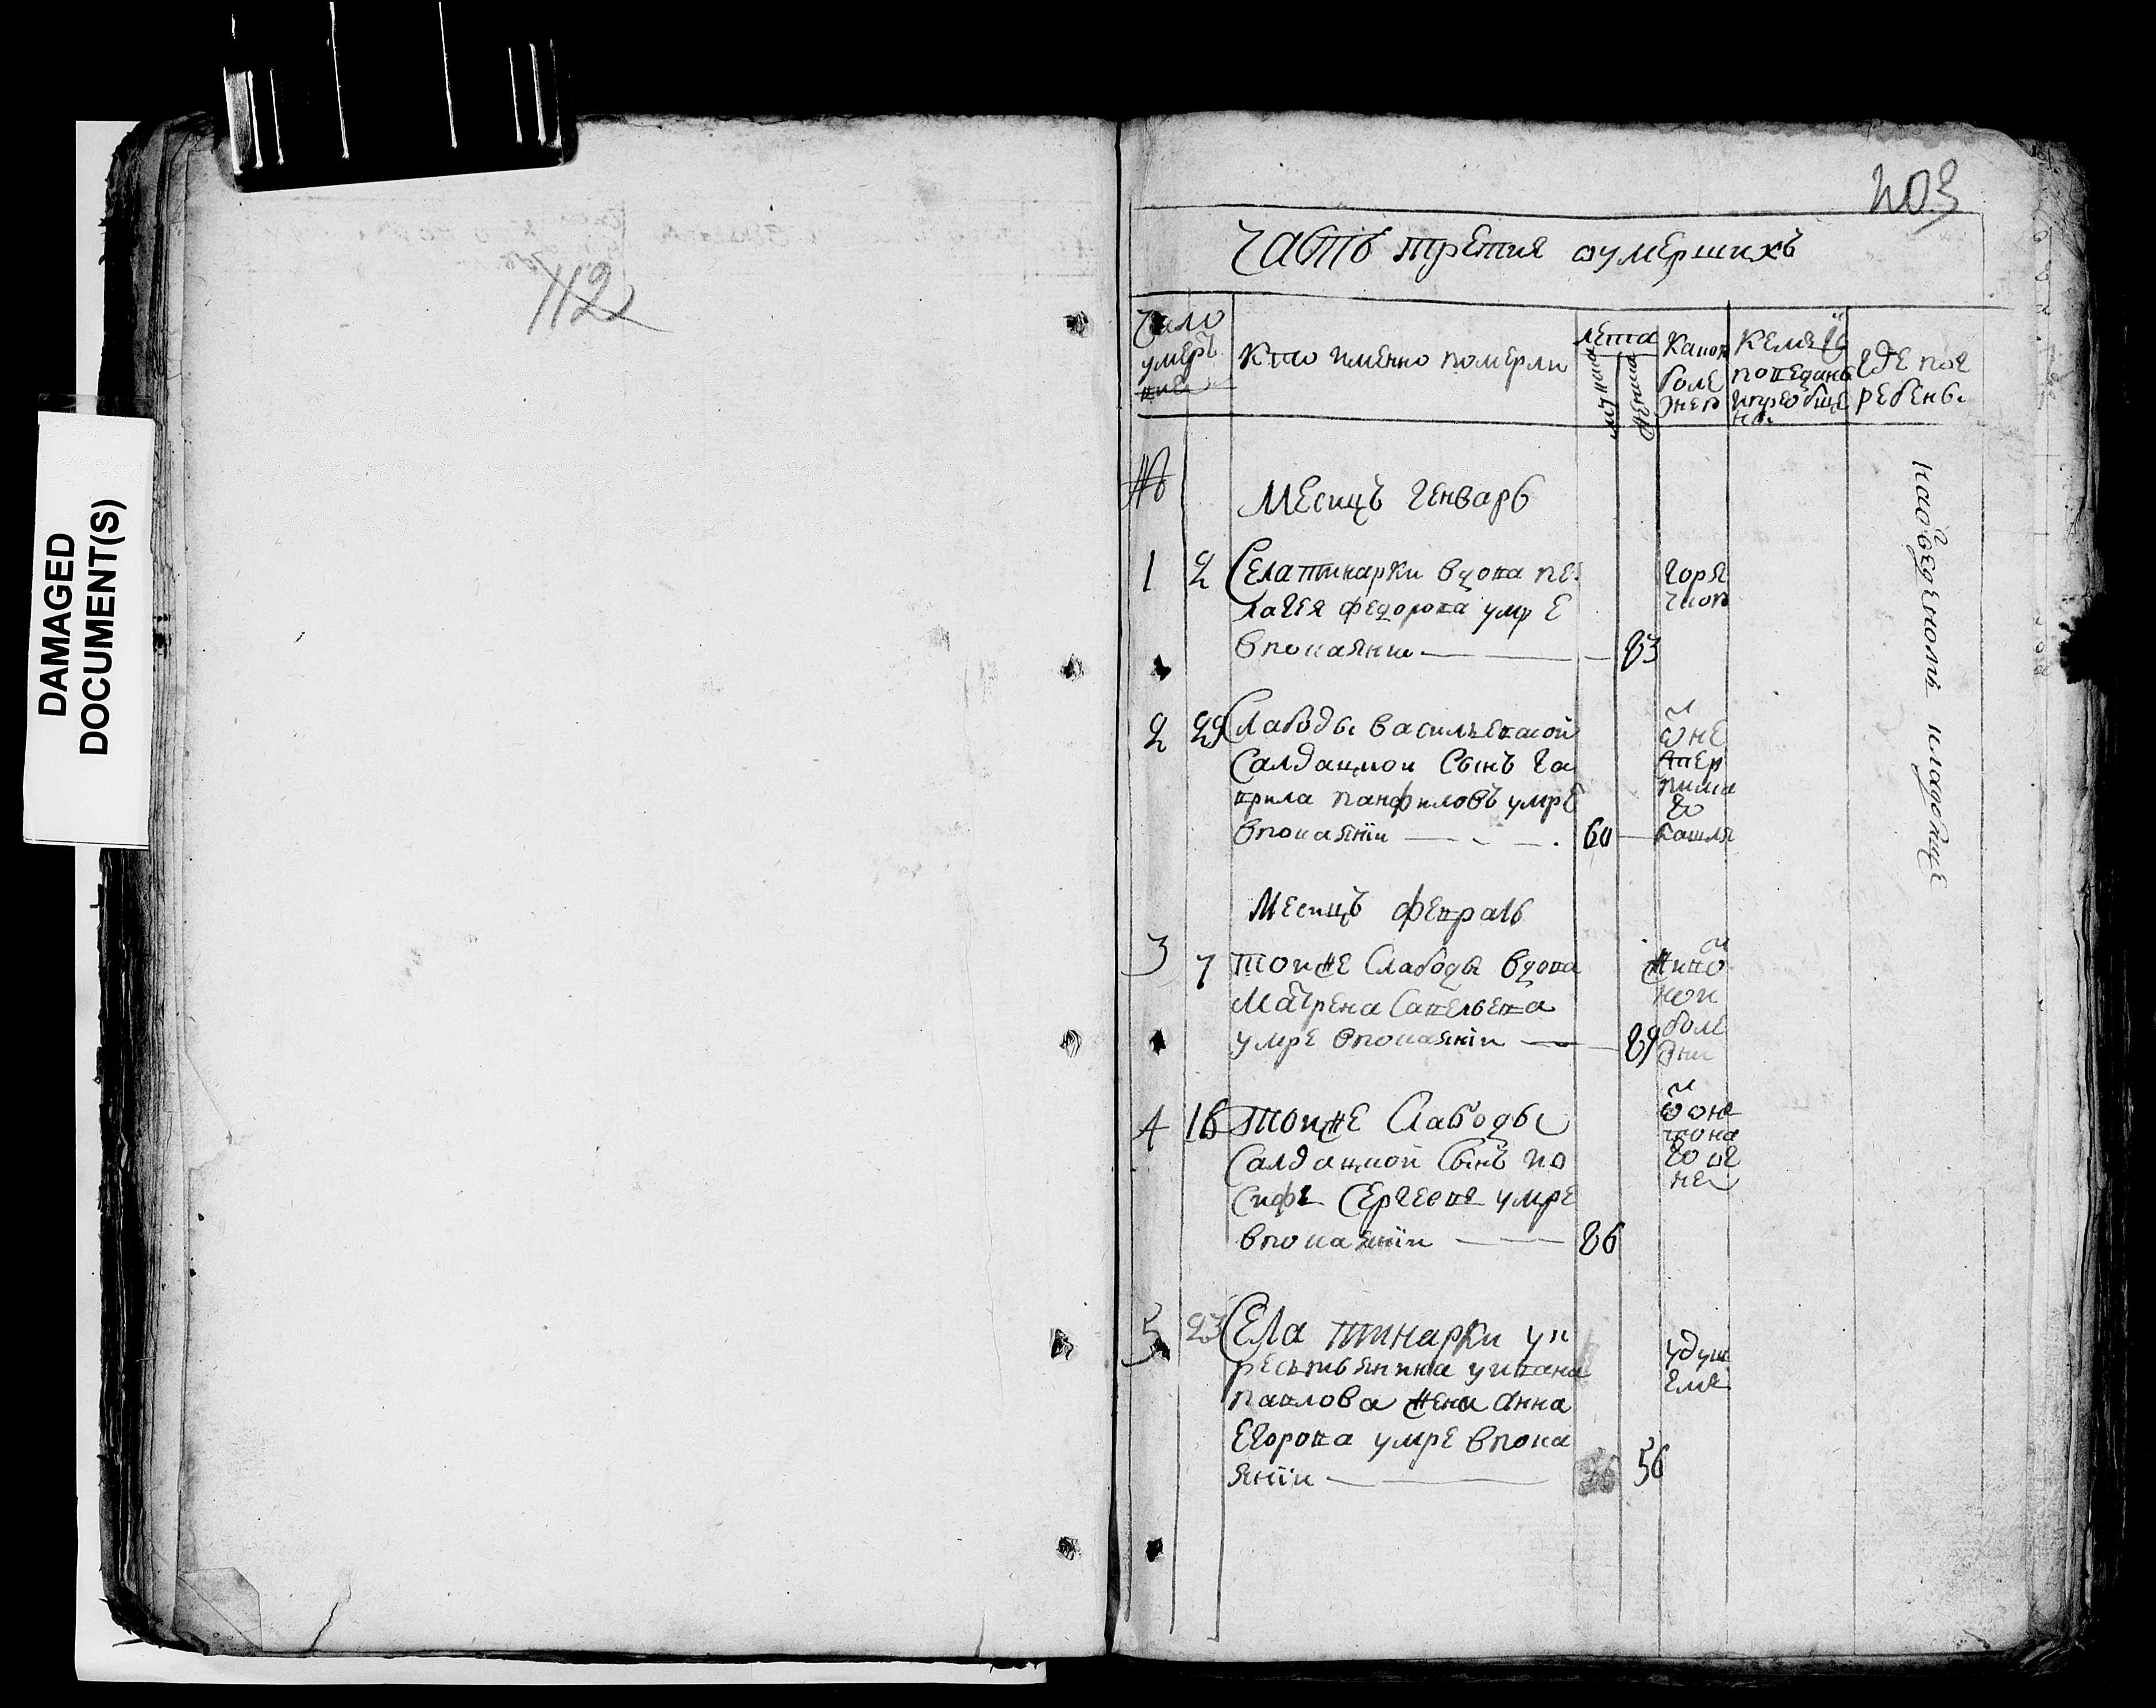 DAMAGED
DOCUMENT(S)
112
203
Часть третия оумершихъ
Число
умеръ
Кто именно померли
лета
мужеска
женска
Какою
боле
знею
Кемъ исповеданы
и приобще
ны
Где пог
ребены
№
Месяцъ генварь
1 2 Села тинарки вдова пе
лагея федорова умре
в покаянии — 83
горя
чкою
2 29 Слабоды васильевской
Салдацкой Сынъ га
врила панфиловъ умре
в покаянїи — 60
ѿ не
терпима
го
кашля
Месяцъ февраль
3 7 тойже Слабоды вдова
Матрена Савельева
умре в покаянїи — 89
живо
ной
боле
зни
4 16 тойже Слабоды
Салдацкой Сынъ ио
сифъ Сергеевъ умре
в покаянїи — 86
5 23 Села тинарки у к
рестьянина у ивана
павлова жена анна
Егорова умре в пока
янїи — 56
удуш
емъ
на обведеномъ кладбище